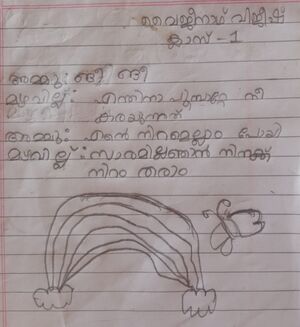 വൈജീനാഥ് വിജീഷ്
ക്ലാസ് -1
അമ്മു: ങീ ങീ
മഴവില്ല് : എന്തിനാ പൂമ്പാറ്റേ നീ
കരയുന്നത്
അമ്മു: എൻ്റെ നിറമെല്ലാം പോയി
മഴവില്ല് : സാരമില്ലഞാൻ നിനക്ക്
നിറം തരാം